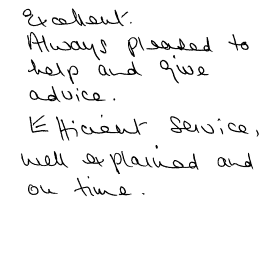 Excellent.
Always pleased to
help and give
advice.
Efficient service,
well explained and
on time.